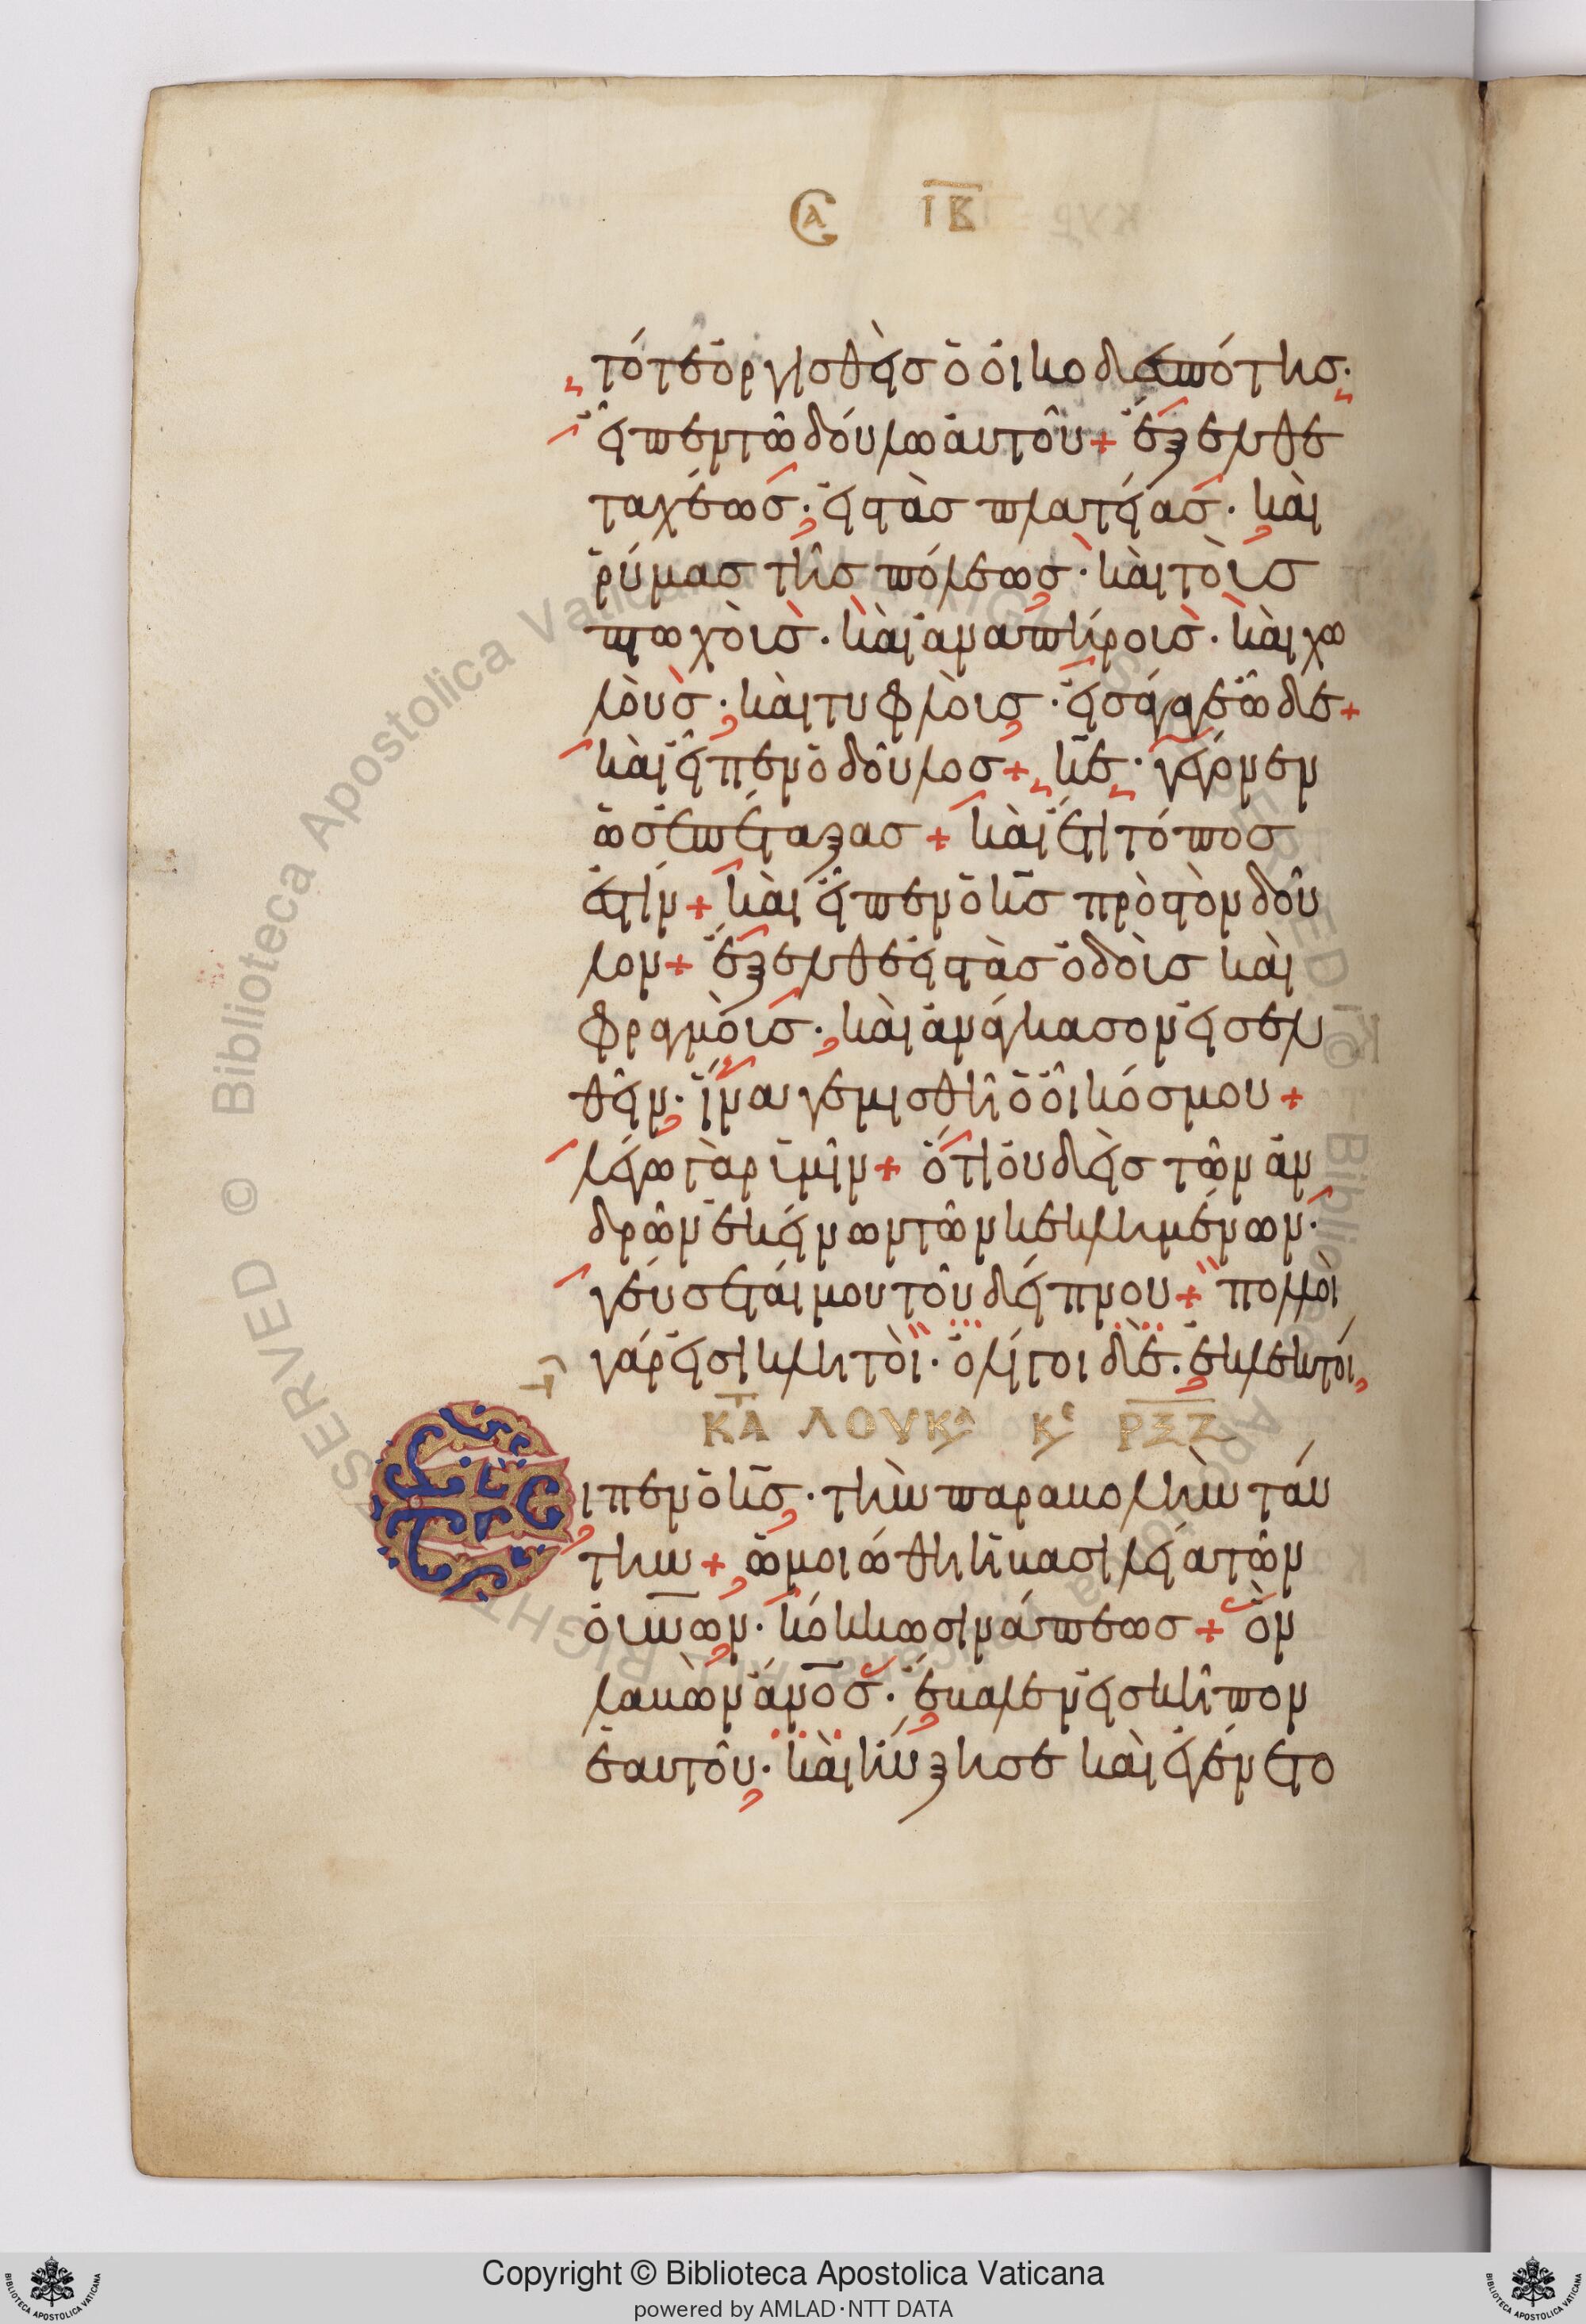 Сα ΙΒ
τότε ὀργισθεὶσ ὁ οἰκοδεσπότησ·
εἶπεν τῶ δούλω αὐτοῦ + ἔξελθε
ταχέωσ· εἰς τὰσ πλατείασ· καὶ
ῥύμασ τῆσ πόλεωσ· καὶ τοὺσ
πτωχοὺσ· καὶ ἀναπήρουσ· καὶ χω
λοὺσ· καὶ τυφλοὺσ· εἰσάγαγε ὧδε +
καὶ εἶπεν ὁ δοῦλοσ + κε· γέγονεν
ὡσ ἐπέταξασ + καὶ ἔτι τόποσ
ἐστίν + καὶ εἶπεν ὁ κσ πρὸς τὸν δοῦ
λον + ἔξελθε εἰς τὰσ ὁδοὺσ καὶ
φραγμοὺσ· καὶ ἀνάγκασον εἰσελ
θεῖν· ἵνα γεμισθῆ ὁ οἶκόσ μου +
λέγω γὰρ ὑμῖν + ὅτι οὐδεὶσ τῶν ἀν
δρῶν ἐκείνων τῶν κεκλημένων·
γεύσεται μου τοῦ δείπνου + πολλοὶ
γάρ εἰσι κλητοί· ὀλίγοι δὲ· ἐκλεκτοί
ΚΤΑ ΛΟΥΚΑ Κε ΡΞΖ
Ειπεν ὁ κσ· τὴν παραβολὴν ταύ
την + ὡμοιώθη ἡ βασιλεία τῶν
οὐνων· κόκκω σινάπεωσ + ὃν
λαβὼν ἄνοσ· ἔβαλεν εἰσ κῆπον
ἑαυτοῦ· καὶ ηὔξησε καὶ ἐγένετο
Copyright © Biblioteca Apostolica Vaticana
powered by AMLAD·NTT DATA